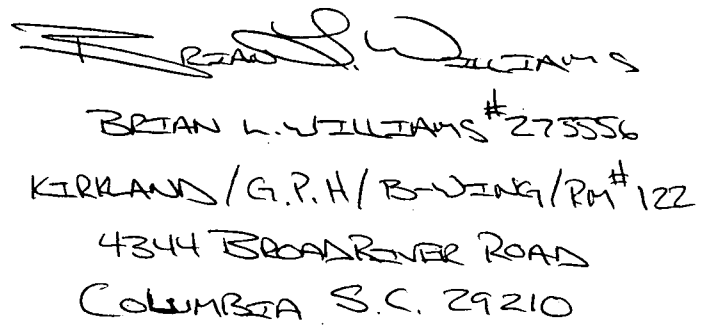 BRIAN L. WILLIAMS
BRIAN L. WILLIAMS #275556
KIRKLAND/G.P.H/B-WING/RM# 122
4344 BROADRIVER ROAD
COLUMBIA S.C. 29210